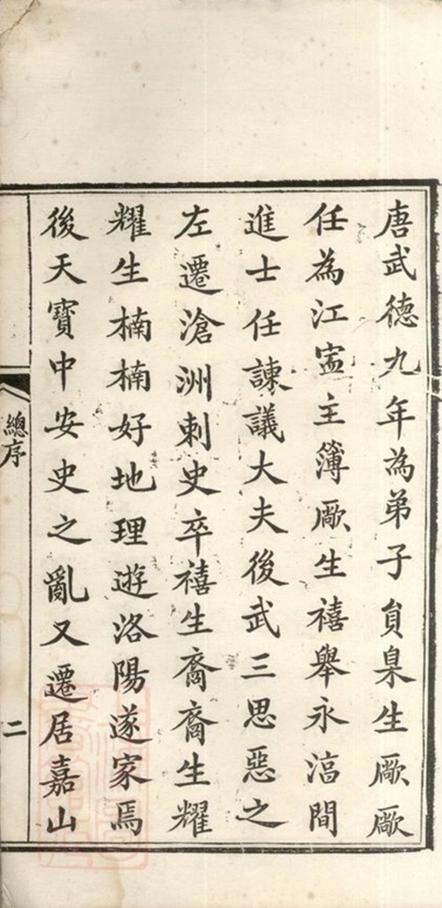 唐武德九年為弟子員臯生厰厰
任為江寍主簿厰生禧舉永湻間
進士任諫議大夫後武三思惡之
左遷滄洲刺史卒禧生裔裔生耀
耀生楠楠好地理遊洛陽遂家焉
後天寶中安史之亂又遷居嘉山
總序
二